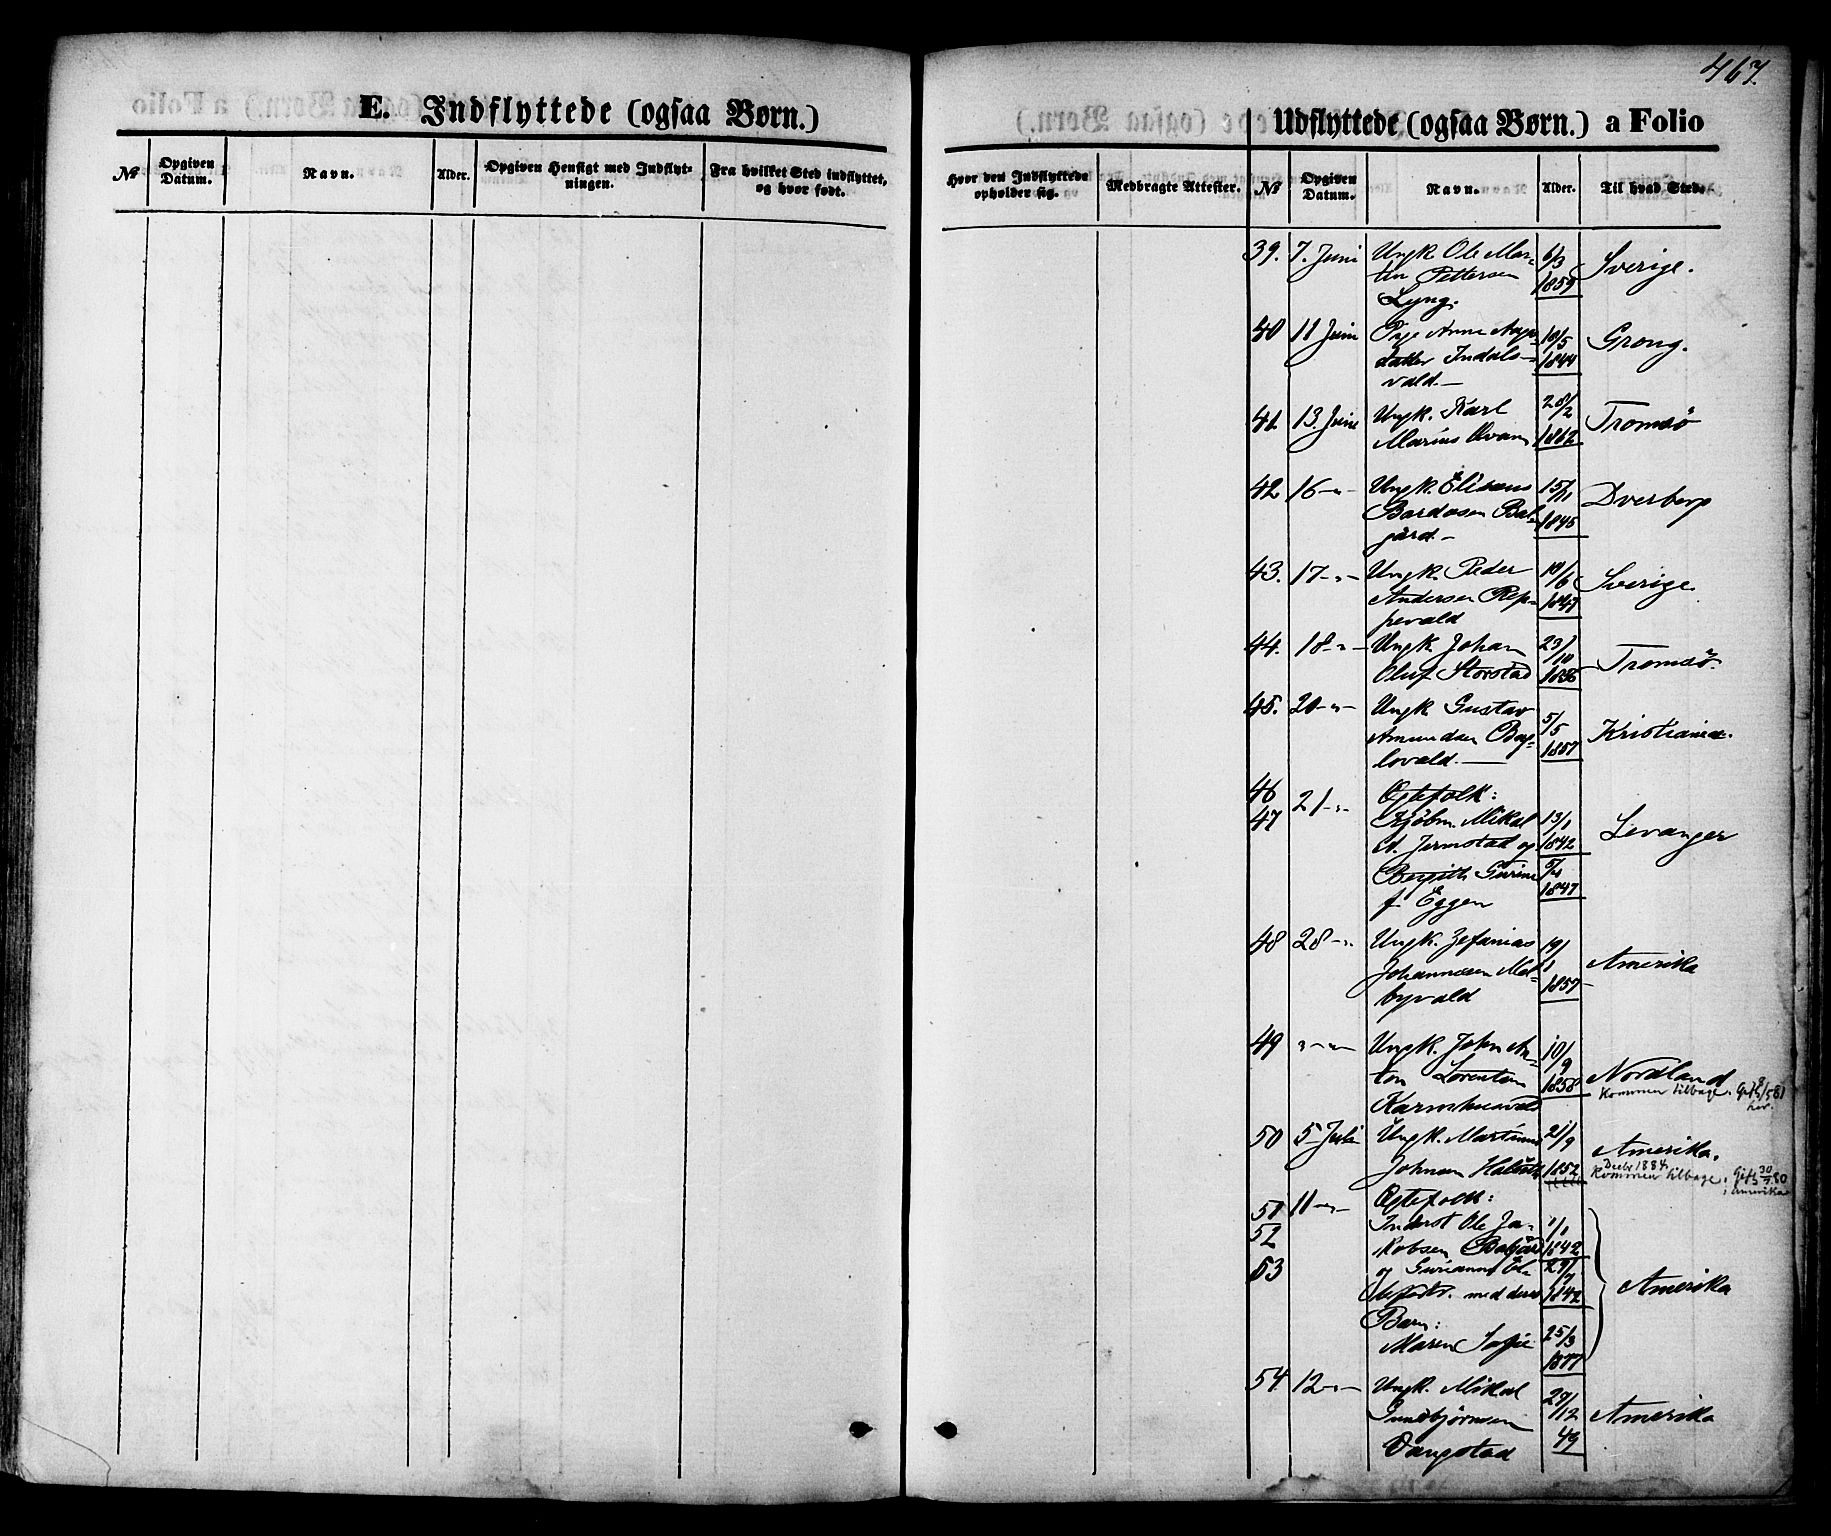 467.
E. Indflyttede (ogsaa Børn.)
Udflyttede (ogsaa Børn.) a Folio
No Opgiven Datum. Navn. Alder. Opgiven Hensigt med Indflytningen. Fra hvilket Sted indflyttet, og hvor født.
Hvor den Indflyttede opholder sig. Medbragte Attester. No Opgiven Datum. Navn. Alder. Til hvad Sted.
39. 7. Juni Ungk. Ole Mar- 6/3 Sverige.
tin Pettersen 1859
Lyng.
40 11 Juni Pige Anne 10/5 Grong.
datter Indals- 1844
vald.
41 13. Juni Ungk. Karl 28/2 Tromsö
Marius 1862
42 16 -"- Ungk. Elisæus 15/11 Dverberg
Bardosen Bal- 1845
gård.
43. 17 -"- Ungk. Peder 19/6 Sverige
Andersen Rep- 1847
pevald
44. 18 -"- Ungk. Johan 23/10 Tromsö.
Oluf Storstad 1856
45. 20 -"- Ungk Gustav 5/5 Kristiania.
Amundsen Bag- 1857
lovald.
46 21 -"- Egtefolk:
47 Kjöbm. Mikal 13/1 Levanger
A. Jermstad og 1842
Bergith Gurine 5/4
f. Eggen 1847
48 28 -"- Ungk. Zefanias 19/1 Amerika
Johannesen Mel- 1857
byvald
49 " -"- Ungk. John An- 10/9 Nordland
ton Lorentsen 1858 Kommen tilbage. Gift 8/5 81
her.
50 5 Juli Ungk. Martinus 21/9 Amerika.
Johnsen 1852 Decbr 1884
Kommen tilbage. Gift 30/5 80
i Amerika
51 11 -"- Egtefolk:
52 Inderst Ole Ja- 1/1
kobsen Balgård 1842
53 og Gurianna El- 29/7 Amerika
med deres 1842
Barn:
Maren Sofie 25/3
1877
54. 12 -"- Ungk. Mikal 29/12 Amerika
Gundbjörnsen 49
Vangstad